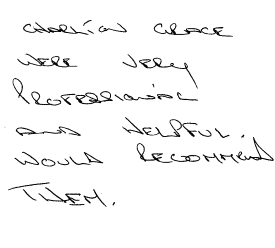 CHARLTON GRACE
WERE VERY
PROFESSIONAL
AND HELPFUL.
WOULD RECOMMEND
THEM.